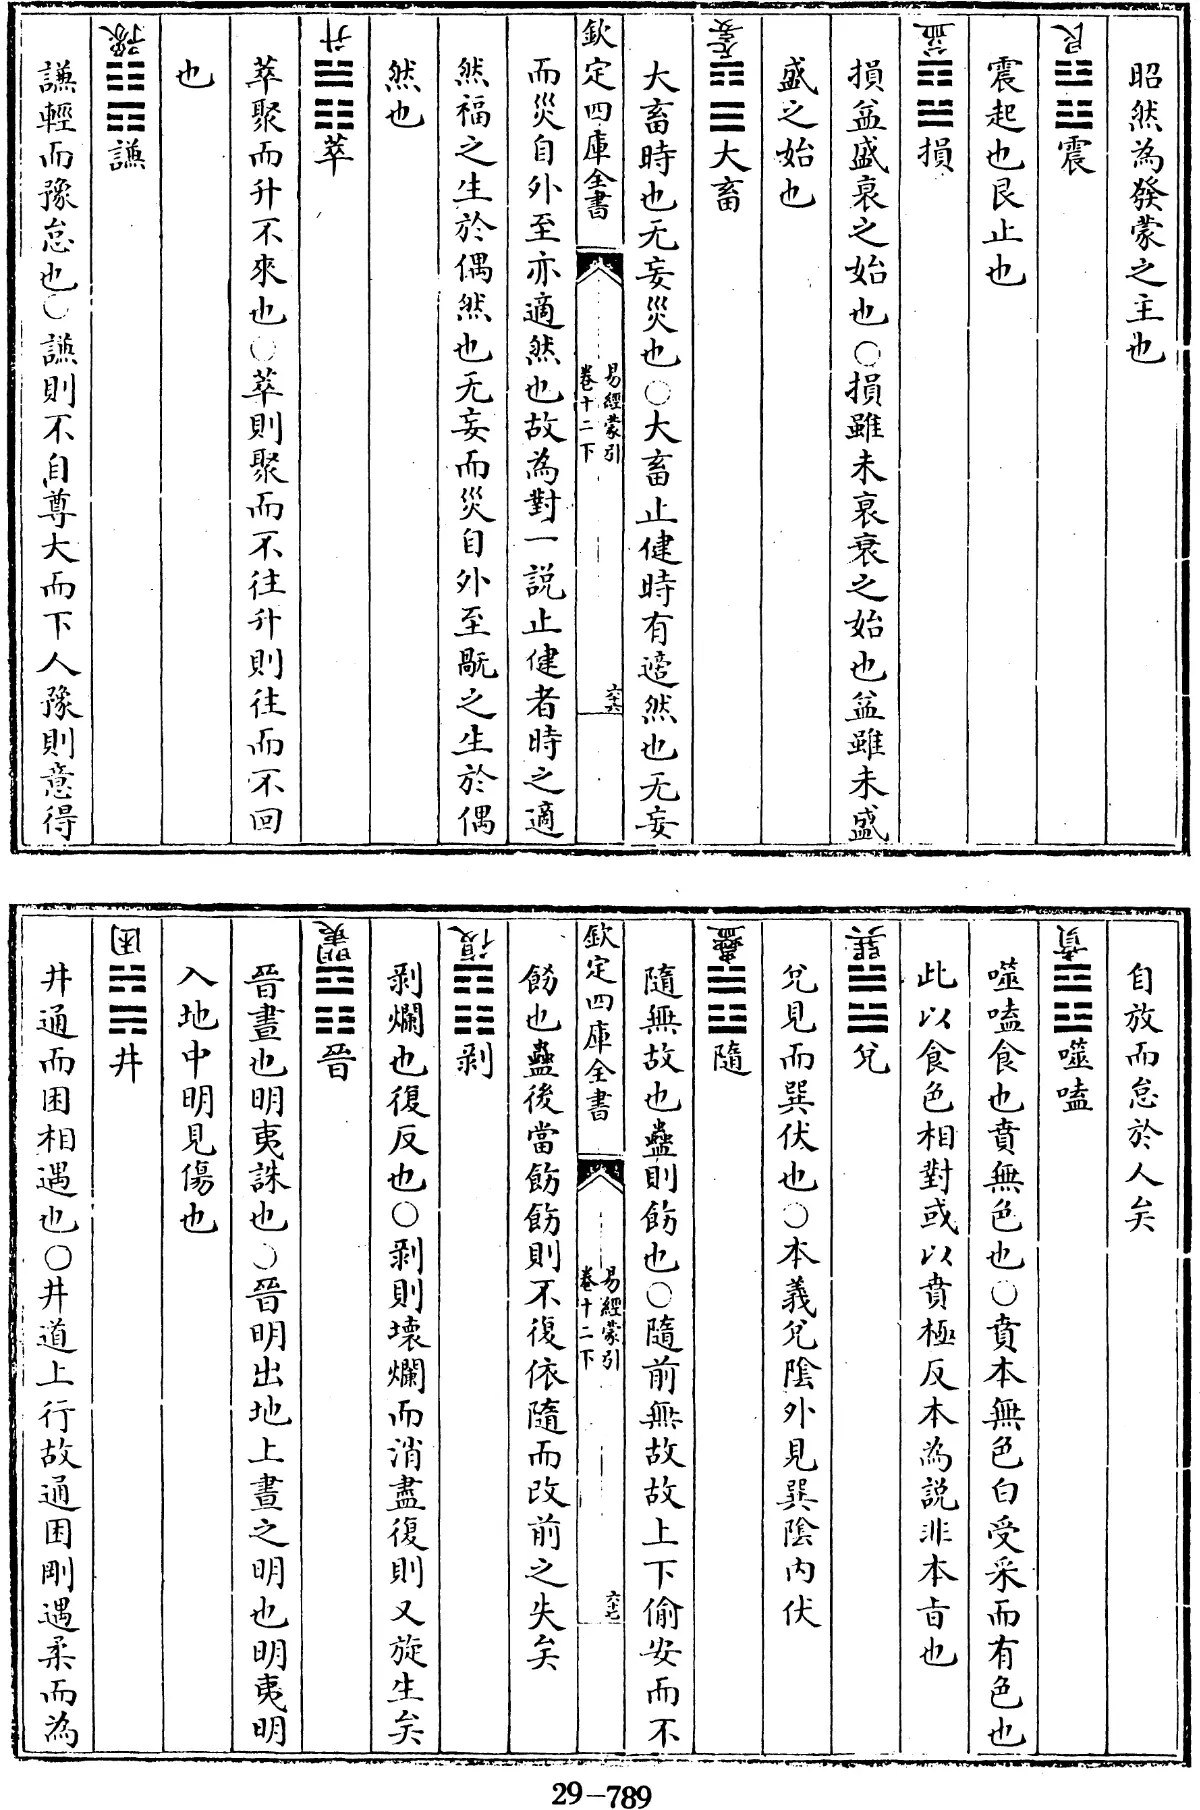 昭然為發蒙之主也
艮䷲震
震起也艮止也
益䷨損
損益盛衰之始也○損雖未衰衰之始也益雖未盛
盛之始也
无妄䷙大畜
大畜時也无妄災也○大畜止健時有適然也无妄
欽定四庫全書
易經蒙引
卷十二下
六十六
而災自外至亦適然也故為對一説止健者時之適
然福之生於偶然也无妄而災自外至厰之生於偶
然也
升䷬萃
萃聚而升不來也○萃則聚而不往升則往而不回
也
豫䷎謙
謙輕而豫怠也○謙則不自尊大而下人豫則意得
自放而怠於人矣
賁䷔噬嗑
噬嗑食也賁無色也○賁本無色白受采而有色也
此以食色相對或以賁極反本為説非本旨也
巽䷹兊
兊見而巽伏也○本義兊陰外見巽陰内伏
蠱䷐隨
隨無故也蠱則飭也○隨前無故故上下偷安而不
欽定四庫全書
易經蒙引
卷十二下
六十七
飭也蠱後當飭飭則不復依隨而改前之失矣
復䷖剥
剥爛也復反也○剥則壞爛而消盡復則又旋生矣
明夷䷢晉
晉晝也明夷誅也○晉明出地上晝之明也明夷明
入地中明見傷也
困䷯井
井通而困相遇也○井道上行故通困剛遇柔而為
29-789